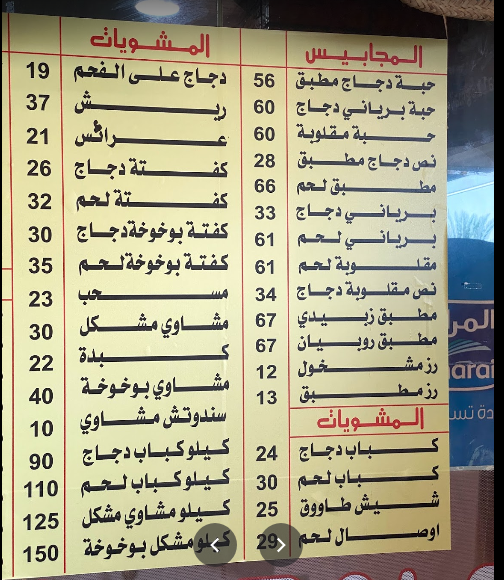 المجابيس
حبة دجاج مطبق 56
حبة برياني دجاج 60
حبة مقلوبة 60
نص دجاج مطبق 28
مطبق لحم 66
برياني دجاج 33
برياني لحم 61
مقلوبة لحم 61
نص مقلوبة دجاج 34
مطبق زبيدي 67
مطبق روبيان 67
رز مشخول 12
رز مطبق 13
المشويات
كباب دجاج 24
كباب لحم 30
شيش طاووق 25
اوصال لحم 29
المشويات
دجاج على الفحم 19
ريش 37
عرائس 21
كفتة دجاج 26
كفتة لحم 32
كفتة بوخوخة دجاج 30
كفتة بوخوخة لحم 35
مسحب 23
مشاوي مشكل 30
كبدة 22
مشاوي بوخوخة 40
سندوتش مشاوي 10
كيلو كباب دجاج 90
كيلو كباب لحم 110
كيلو مشاوي مشكل 125
كيلو مشكل بوخوخة 150
المر
arai